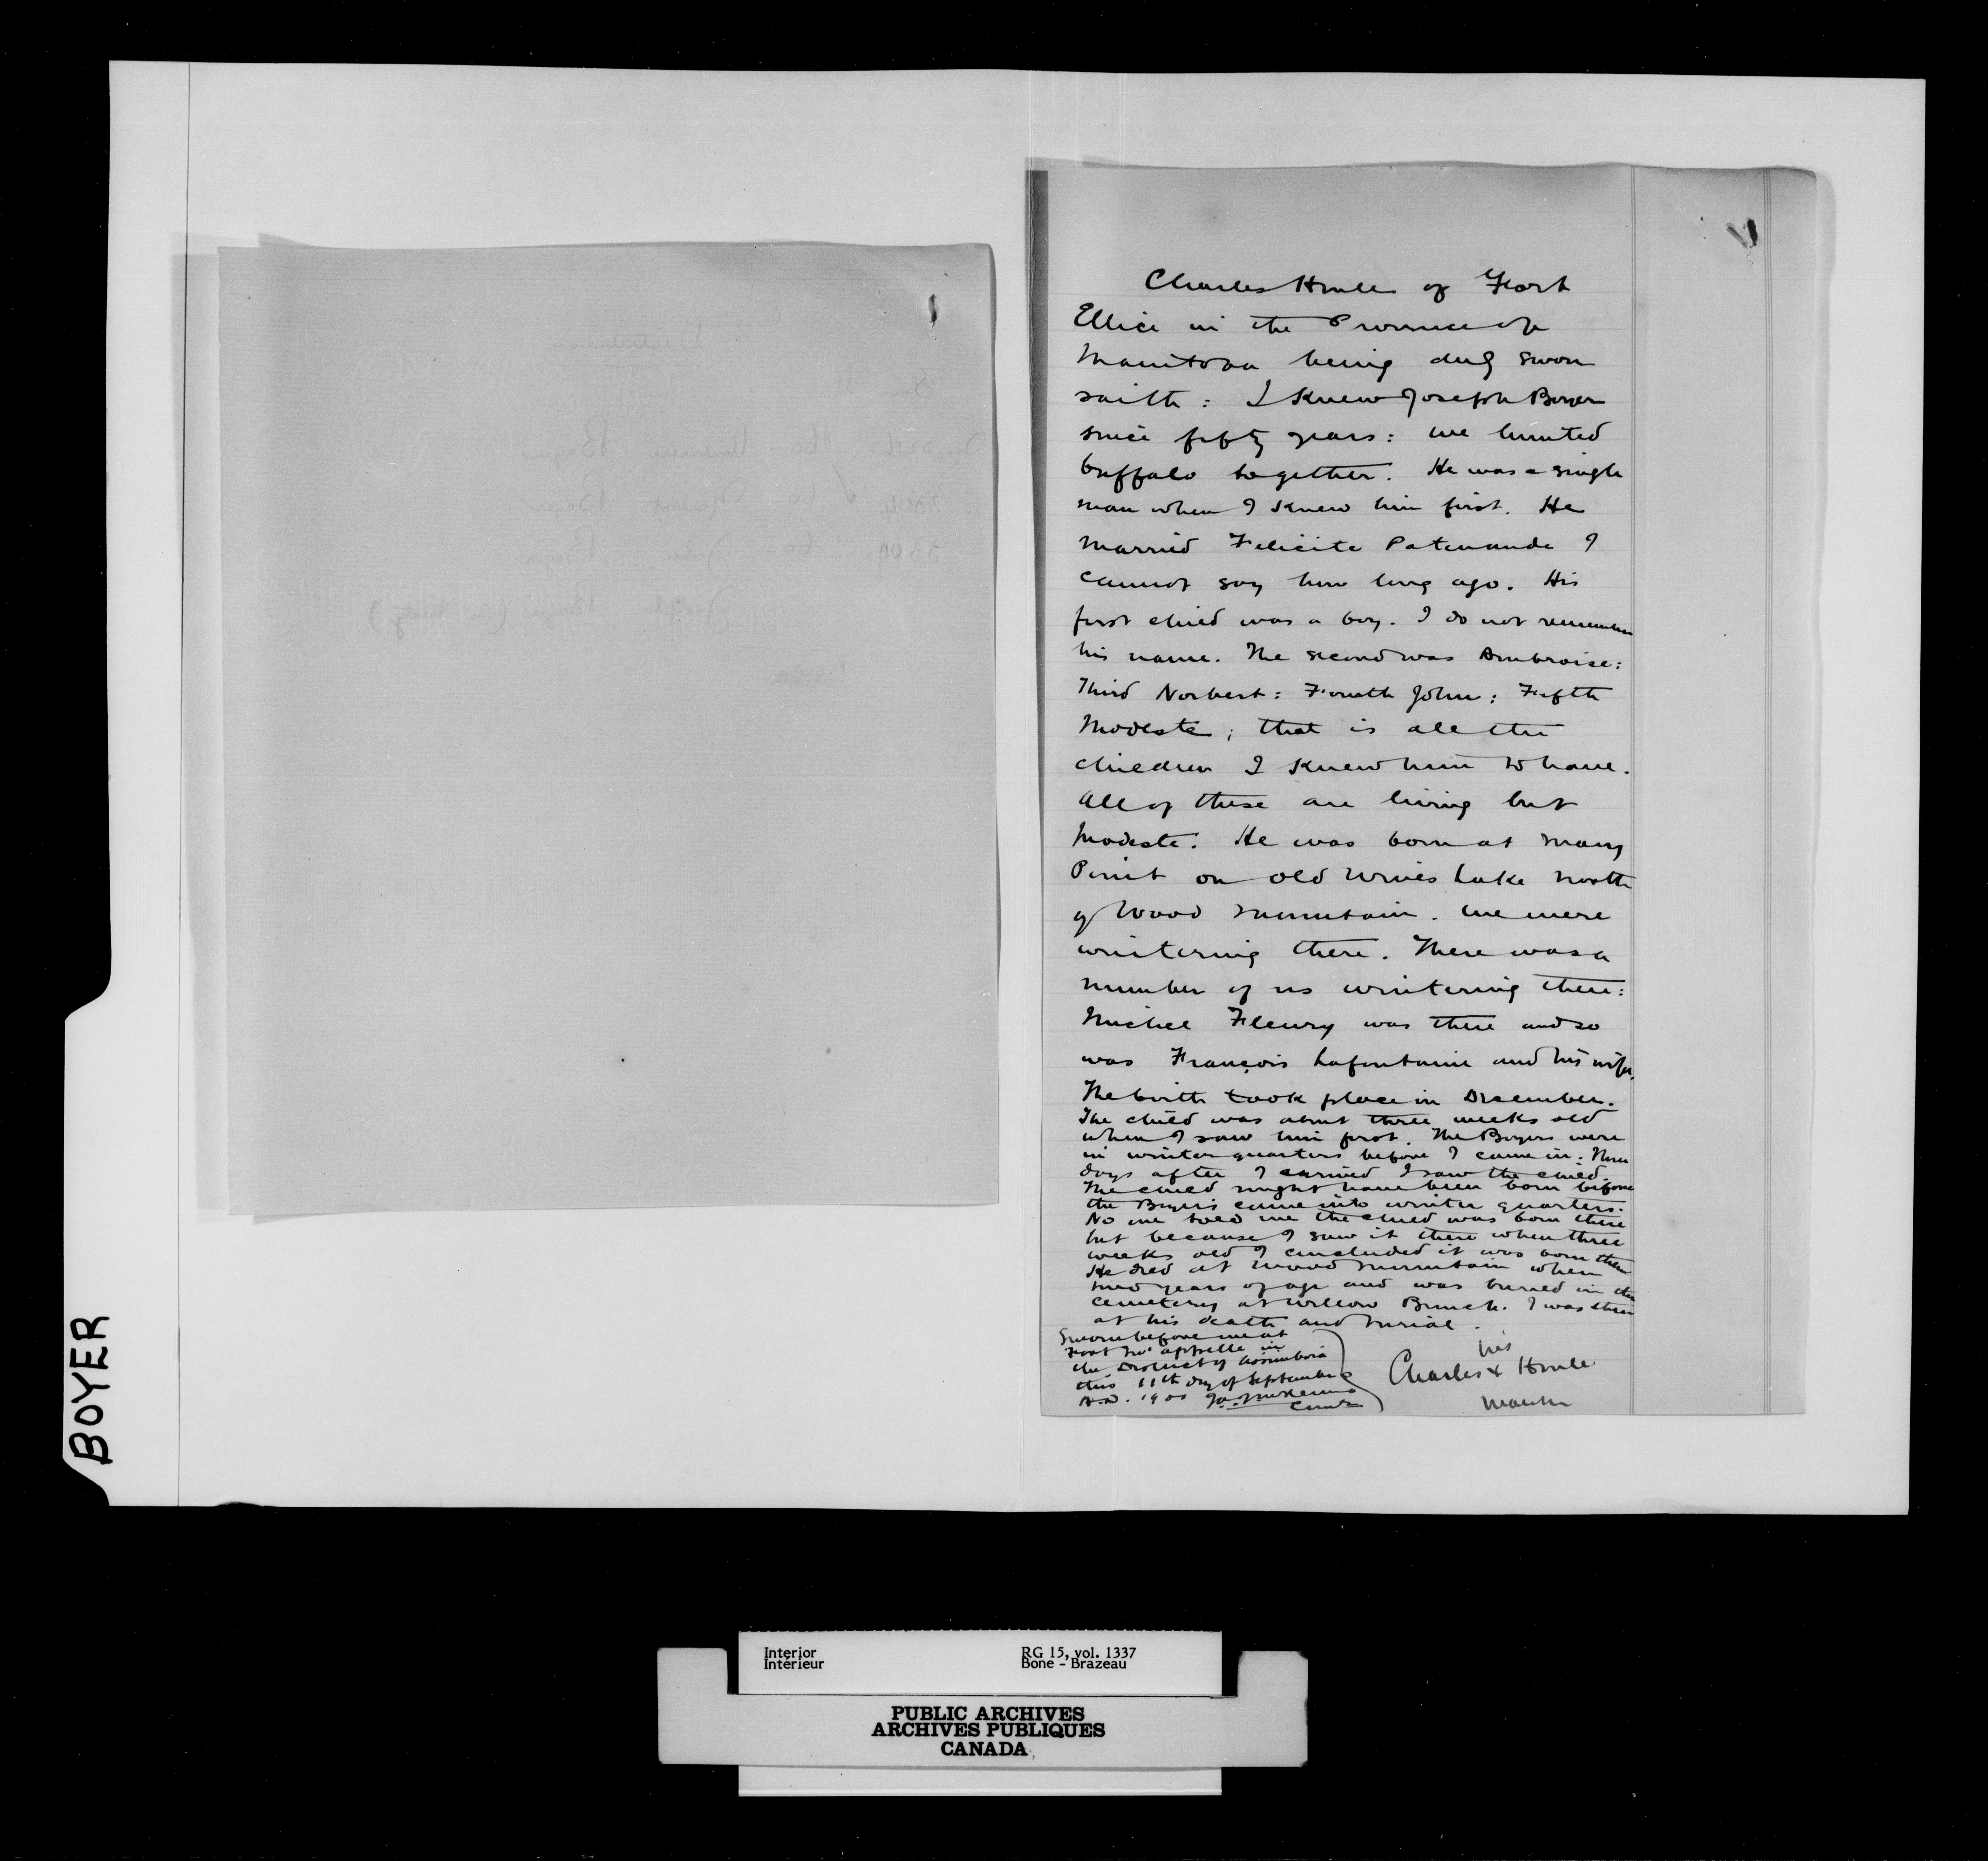 Charles Houle of Fort
Ellice in the Province of
Manitoba being duly sworn
saith : I knew Joseph Boyer
since fifty years : we hunted
buffalo together. He was a single
man when I knew him first. He
married Felicite Patenaude I
cannot say how long ago. His
first child was a boy. I do not remember
his name. The second was Ambroise :
Third Norbert : Fourth John : Fifth
Modeste ; that is all the
children I knew him to have.
All of these are living but
Modeste. He was born at Many
Point on Old Wives Lake north
of Wood Mountain. We were
wintering there. There was a
number of us wintering there :
Michel Fleury was there and so
was François Lafontaine and his wife.
The birth took place in December.
The child was about three weeks old
when I saw him first. The Boyers were
in winter quarters before I came in. Three
days after I arrived I saw the child.
The child might have been born before
the Boyers came into winter quarters.
No one told me the child was born there
but because I saw it there when three
weeks old I concluded it was born there
He died at Wood Mountain when
two years of age and was buried in the
cemetery at Willow Bunch. I was there
at his death and burial.
Sworn before me at
Fort Qu'Appelle in
the District of Assiniboia
this 11th day of September
A.D. 1900
his
Charles x Houle
mark
BOYER
Interior
Intérieur
RG 15, vol. 1337
Bone - Brazeau
PUBLIC ARCHIVES
ARCHIVES PUBLIQUES
CANADA